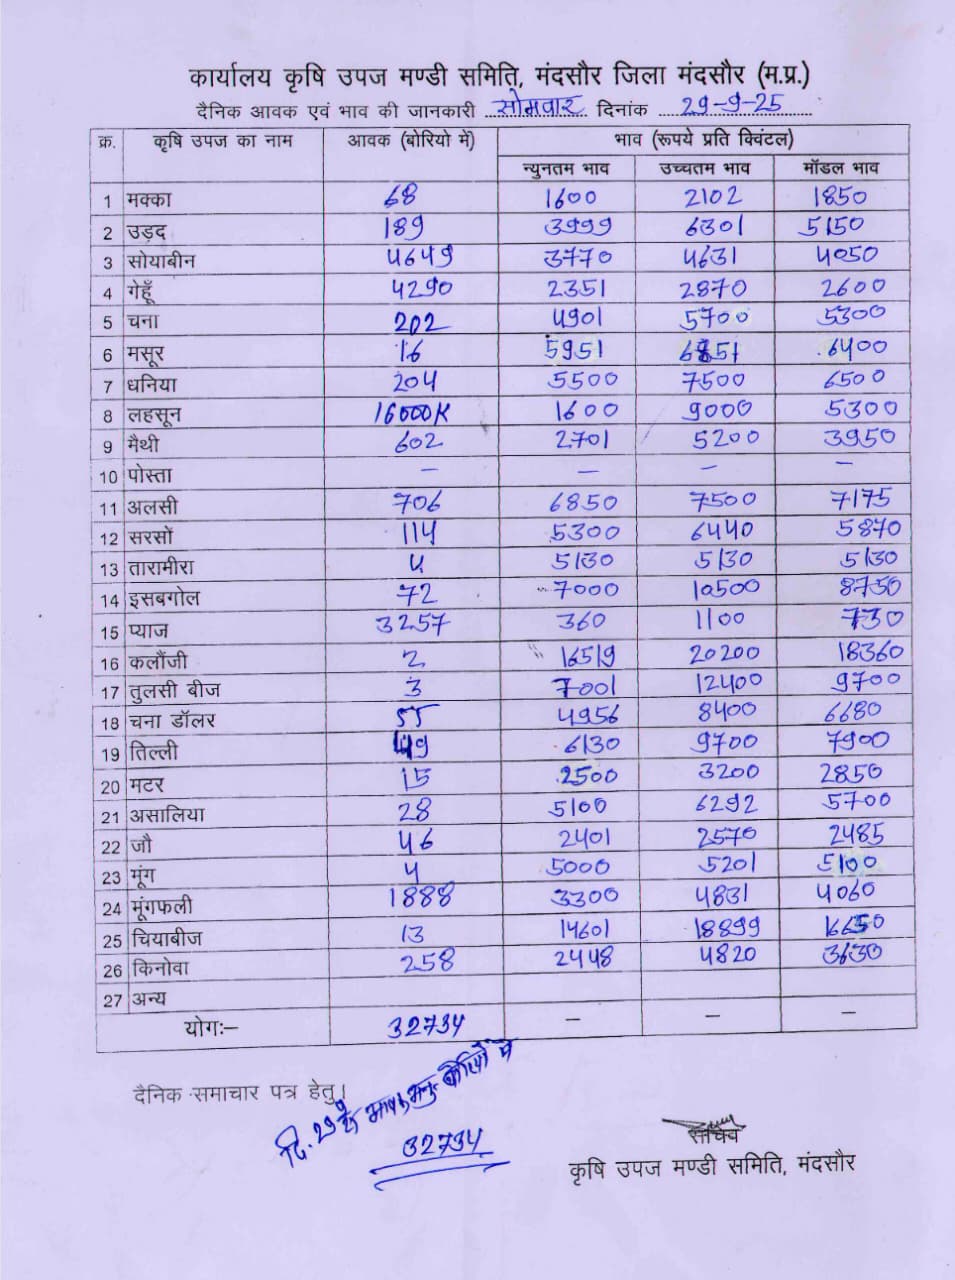 कार्यालय कृषि उपज मण्डी समिति, मंदसौर जिला मंदसौर (म.प्र.)
दैनिक आवक एवं भाव की जानकारी सोमवार दिनांक 29-9-25
क्र. कृषि उपज का नाम आवक (बोरियो में) भाव (रूपये प्रति क्विंटल)
न्युनतम भाव उच्चतम भाव मॉडल भाव
1 मक्का 68 1600 2102 1850
2 उड़द 189 3999 6301 5150
3 सोयाबीन 4649 3770 4631 4050
4 गेहूँ 4290 2351 2870 2600
5 चना 202 4901 5700 5300
6 मसूर 16 5951 6851 6400
7 धनिया 204 5500 7500 6500
8 लहसून 16000K 1600 9000 5300
9 मैथी 602 2701 5200 3950
10 पोस्ता – – – –
11 अलसी 706 6850 7500 7175
12 सरसों 114 5300 6440 5870
13 तारामीरा 4 5130 5130 5130
14 इसबगोल 72 7000 10500 8750
15 प्याज 3257 360 1100 730
16 कलौंजी 2 16519 20200 18360
17 तुलसी बीज 3 7001 12400 9700
18 चना डॉलर 55 4956 8400 6680
19 तिल्ली 49 6130 9700 7900
20 मटर 15 2500 3200 2850
21 असालिया 28 5100 6292 5700
22 जौ 46 2401 2570 2485
23 मूंग 4 5000 5201 5100
24 मूंगफली 1888 3300 4831 4060
25 चियाबीज 13 14601 18899 16650
26 किनोवा 258 2448 4820 3630
27 अन्य
योगः– 32734 – – –
दैनिक समाचार पत्र हेतु।
दि. 29 बोरियो में
32734
सचिव
कृषि उपज मण्डी समिति, मंदसौर